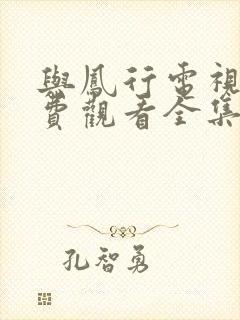 與鳳行電視
費觀看全集
孔智勇